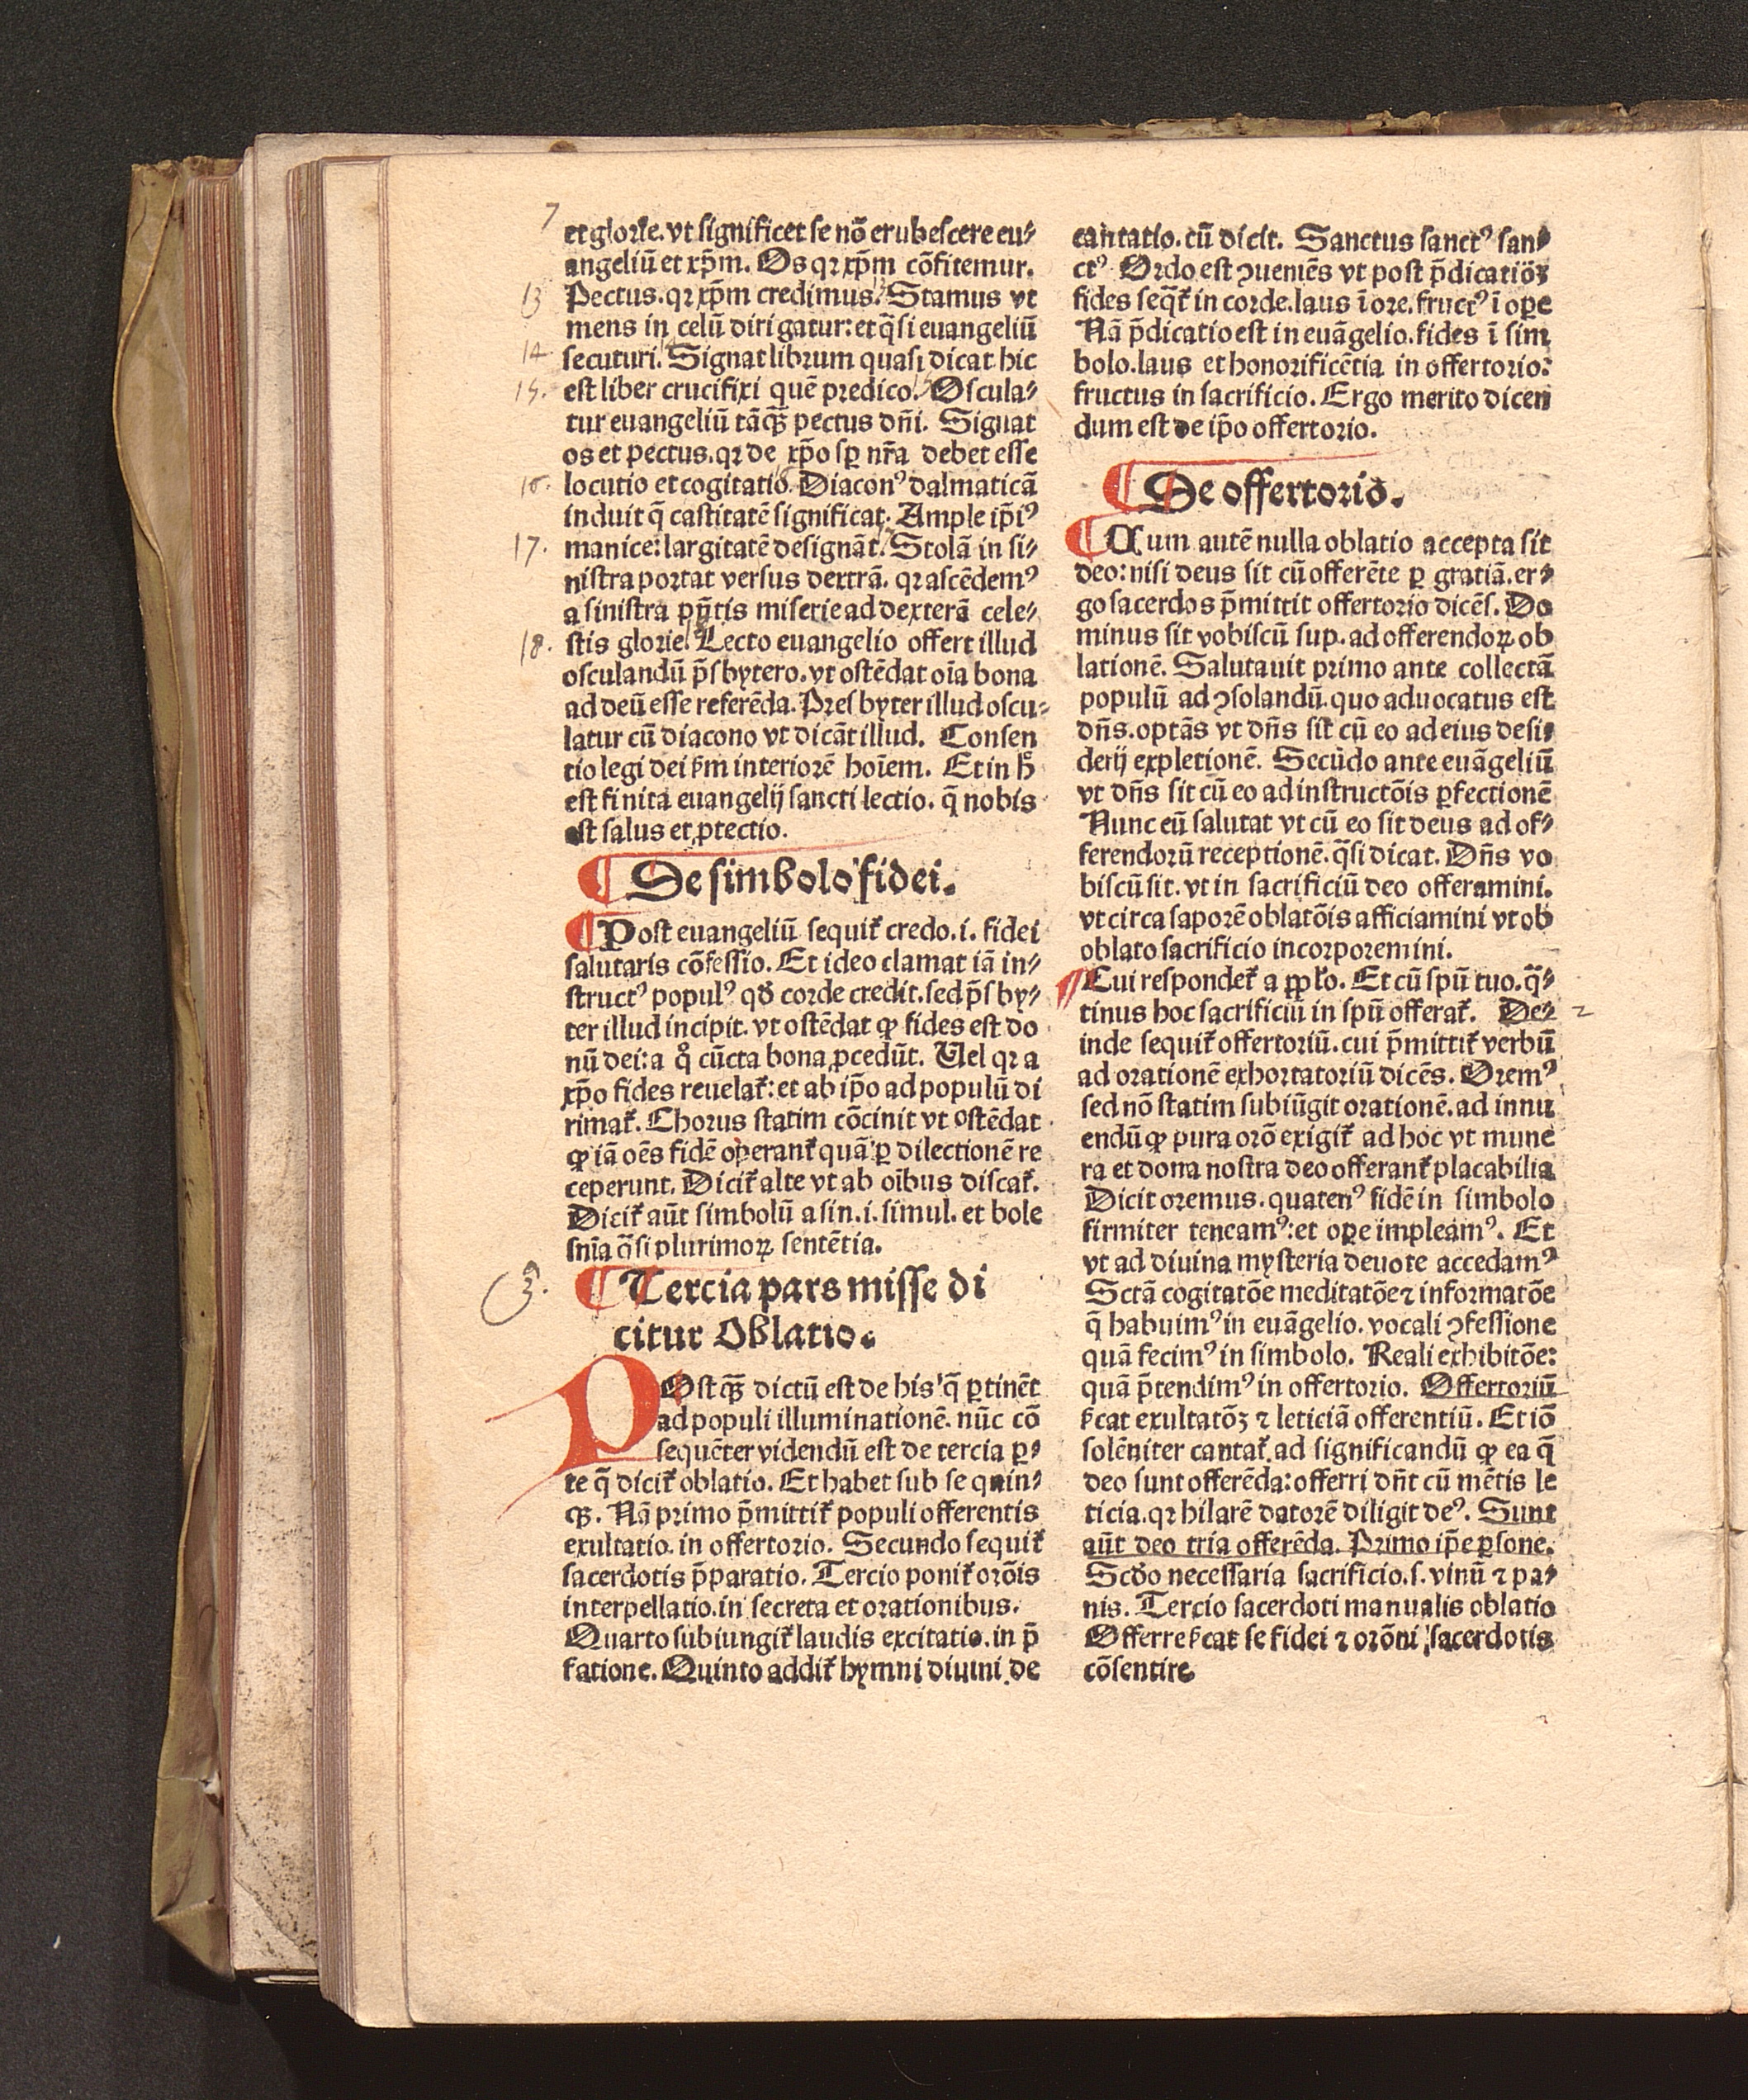 7
et glorie. vt significet se nō erubescere eu⸗
angeliū et xp̄m. Os qꝛ xp̄m cōfitemur.
13 Pectus. qꝛ xp̄m credimus. Stamus vt
mens in celū dirigatur: et q̄si euangeliū
14 secuturi. Signat librum quasi dicat hic
15. est liber crucifixi quē predico. Oscula⸗
tur euangeliū tāqꝫ pectus dn̄i. Signat
os et pectus. qꝛ de xp̄o sꝑ nr̄a debet esse
16. locutio et cogitatio. Diaconꝰ dalmaticā
induit q̄ castitatē significat. Ample ip̄iꝰ
17. manice: largitatē designāt. Stolā in si⸗
nistra portat versus dextrā. qꝛ ascēdemꝰ
a sinistra pn̄tis miserie ad dexterā cele⸗
18. stis glorie. Lecto euangelio offert illud
osculandū p̄sbytero. vt ostēdat oīa bona
ad deū esse referēda. Presbyter illud oscu⸗
latur cū diacono vt dicāt illud. Consen
tio legi dei ẜm interiorē hoīem. Et in h̊
est finita euangelij sancti lectio. q̄ nobis
est salus et ꝓtectio.
¶ De simbolo fidei.
¶ Post euangeliū sequit᷑ credo. i. fidei
salutaris cōfessio. Et ideo clamat iā in⸗
structꝰ populꝰ qd̛ corde credit. sed p̄sby⸗
ter illud incipit. vt ostēdat ꝙ fides est do
nū dei: a q̊ cūcta bona ꝓcedūt. Uel qꝛ a
xp̄o fides reuelat᷑: et ab ip̄o ad populū di
rimat᷑. Chorus statim cōcinit vt ostēdat
ꝙ iā oēs fidē operant᷑ quā ꝑ dilectionē re
ceperunt. Dicit᷑ alte vt ab oībus discat᷑.
Dicit᷑ aūt simbolū a sin. i. simul. et bole
snīa q̄si plurimoꝝ sentētia.
3. ¶ Tercia pars misse di
citur Oblatio.
POstqꝫ dictū est de his q̄ ꝑtinēt
ad populi illuminationē. nūc cō
sequēter videndū est de tercia ꝑ⸗
te q̄ dicit᷑ oblatio. Et habet sub se quin⸗
qꝫ. Nā primo p̄mittit᷑ populi offerentis
exultatio. in offertorio. Secundo sequit᷑
sacerdotis p̄paratio. Tercio ponit᷑ orōis
interpellatio. in secreta et orationibus.
Quarto subiungit᷑ laudis excitatio. in p̄
fatione. Quinto addit᷑ hymni diuini de
cantatio. cū dicit. Sanctus sanctꝰ san⸗
ctꝰ Ordo est ꝯueniēs vt post p̄dicatiōꝫ
fides seqt᷑ in corde. laus ī ore. fructꝰ ī oꝑe
Nā p̄dicatio est in euāgelio. fides ī sim
bolo. laus et honorificētia in offertorio:
fructus in sacrificio. Ergo merito dicen
dum est de ip̄o offertorio.
¶ De offertorio.
¶ Cum autē nulla oblatio accepta sit
deo: nisi deus sit cū offerēte ꝑ gratiā. er⸗
go sacerdos p̄mittit offertorio dicēs. Do
minus sit vobiscū sup. ad offerendoꝝ ob
lationē. Salutauit primo ante collectā
populū ad ꝯsolandū. quo aduocatus est
dn̄s. optās vt dn̄s sit cū eo ad eius desi⸗
derij expletionē. Secūdo ante euāgeliū
vt dn̄s sit cū eo ad instructōis ꝑfectionē
Nunc eū salutat vt cū eo sit deus ad of⸗
ferendorū receptionē. q̄si dicat. Dn̄s vo
biscū sit. vt in sacrificiū deo offeramini.
vt circa saporē oblatōis afficiamini vt ob
oblato sacrificio incorporemini.
Cui respondet᷑ a pp̄lo. Et cū spū tuo. q̄⸗
tinus hoc sacrificiū in spū offerat᷑. De⸗ 2
inde sequit᷑ offertoriū. cui p̄mittit᷑ verbū
ad orationē exhortatoriū dicēs. Oremꝰ
sed nō statim subiūgit orationē. ad innu
endū ꝙ pura orō exigit᷑ ad hoc vt mune
ra et dona nostra deo offerant᷑ placabilia
Dicit oremus. quatenꝰ fidē in simbolo
firmiter teneamꝰ: et oꝑe impleamꝰ. Et
vt ad diuina mysteria deuote accedamꝰ
Sctā cogitatōe meditatōe ⁊ informatōe
q̄ habuimꝰ in euāgelio. vocali ꝯfessione
quā fecimꝰ in simbolo. Reali exhibitōe:
quā p̄tendimꝰ in offertorio. Offertoriū
ẜcat exultatōꝫ ⁊ leticiā offerentiū. Et iō
solēniter cantat᷑. ad significandū ꝙ ea q̄
deo sunt offerēda: offerri dn̄t cū mētis le
ticia. qꝛ hilarē datorē diligit deꝰ. Sunt
aūt deo tria offerēda. Primo ip̄e ꝑsone.
Scd̛o necessaria sacrificio. s. vinū ⁊ pa⸗
nis. Tercio sacerdoti manualis oblatio
Offerre ẜcat se fidei ⁊ orōni sacerdotis
cōsentire